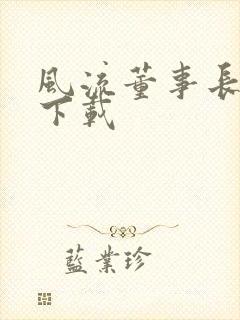 風流董事長
下載
藍業珍